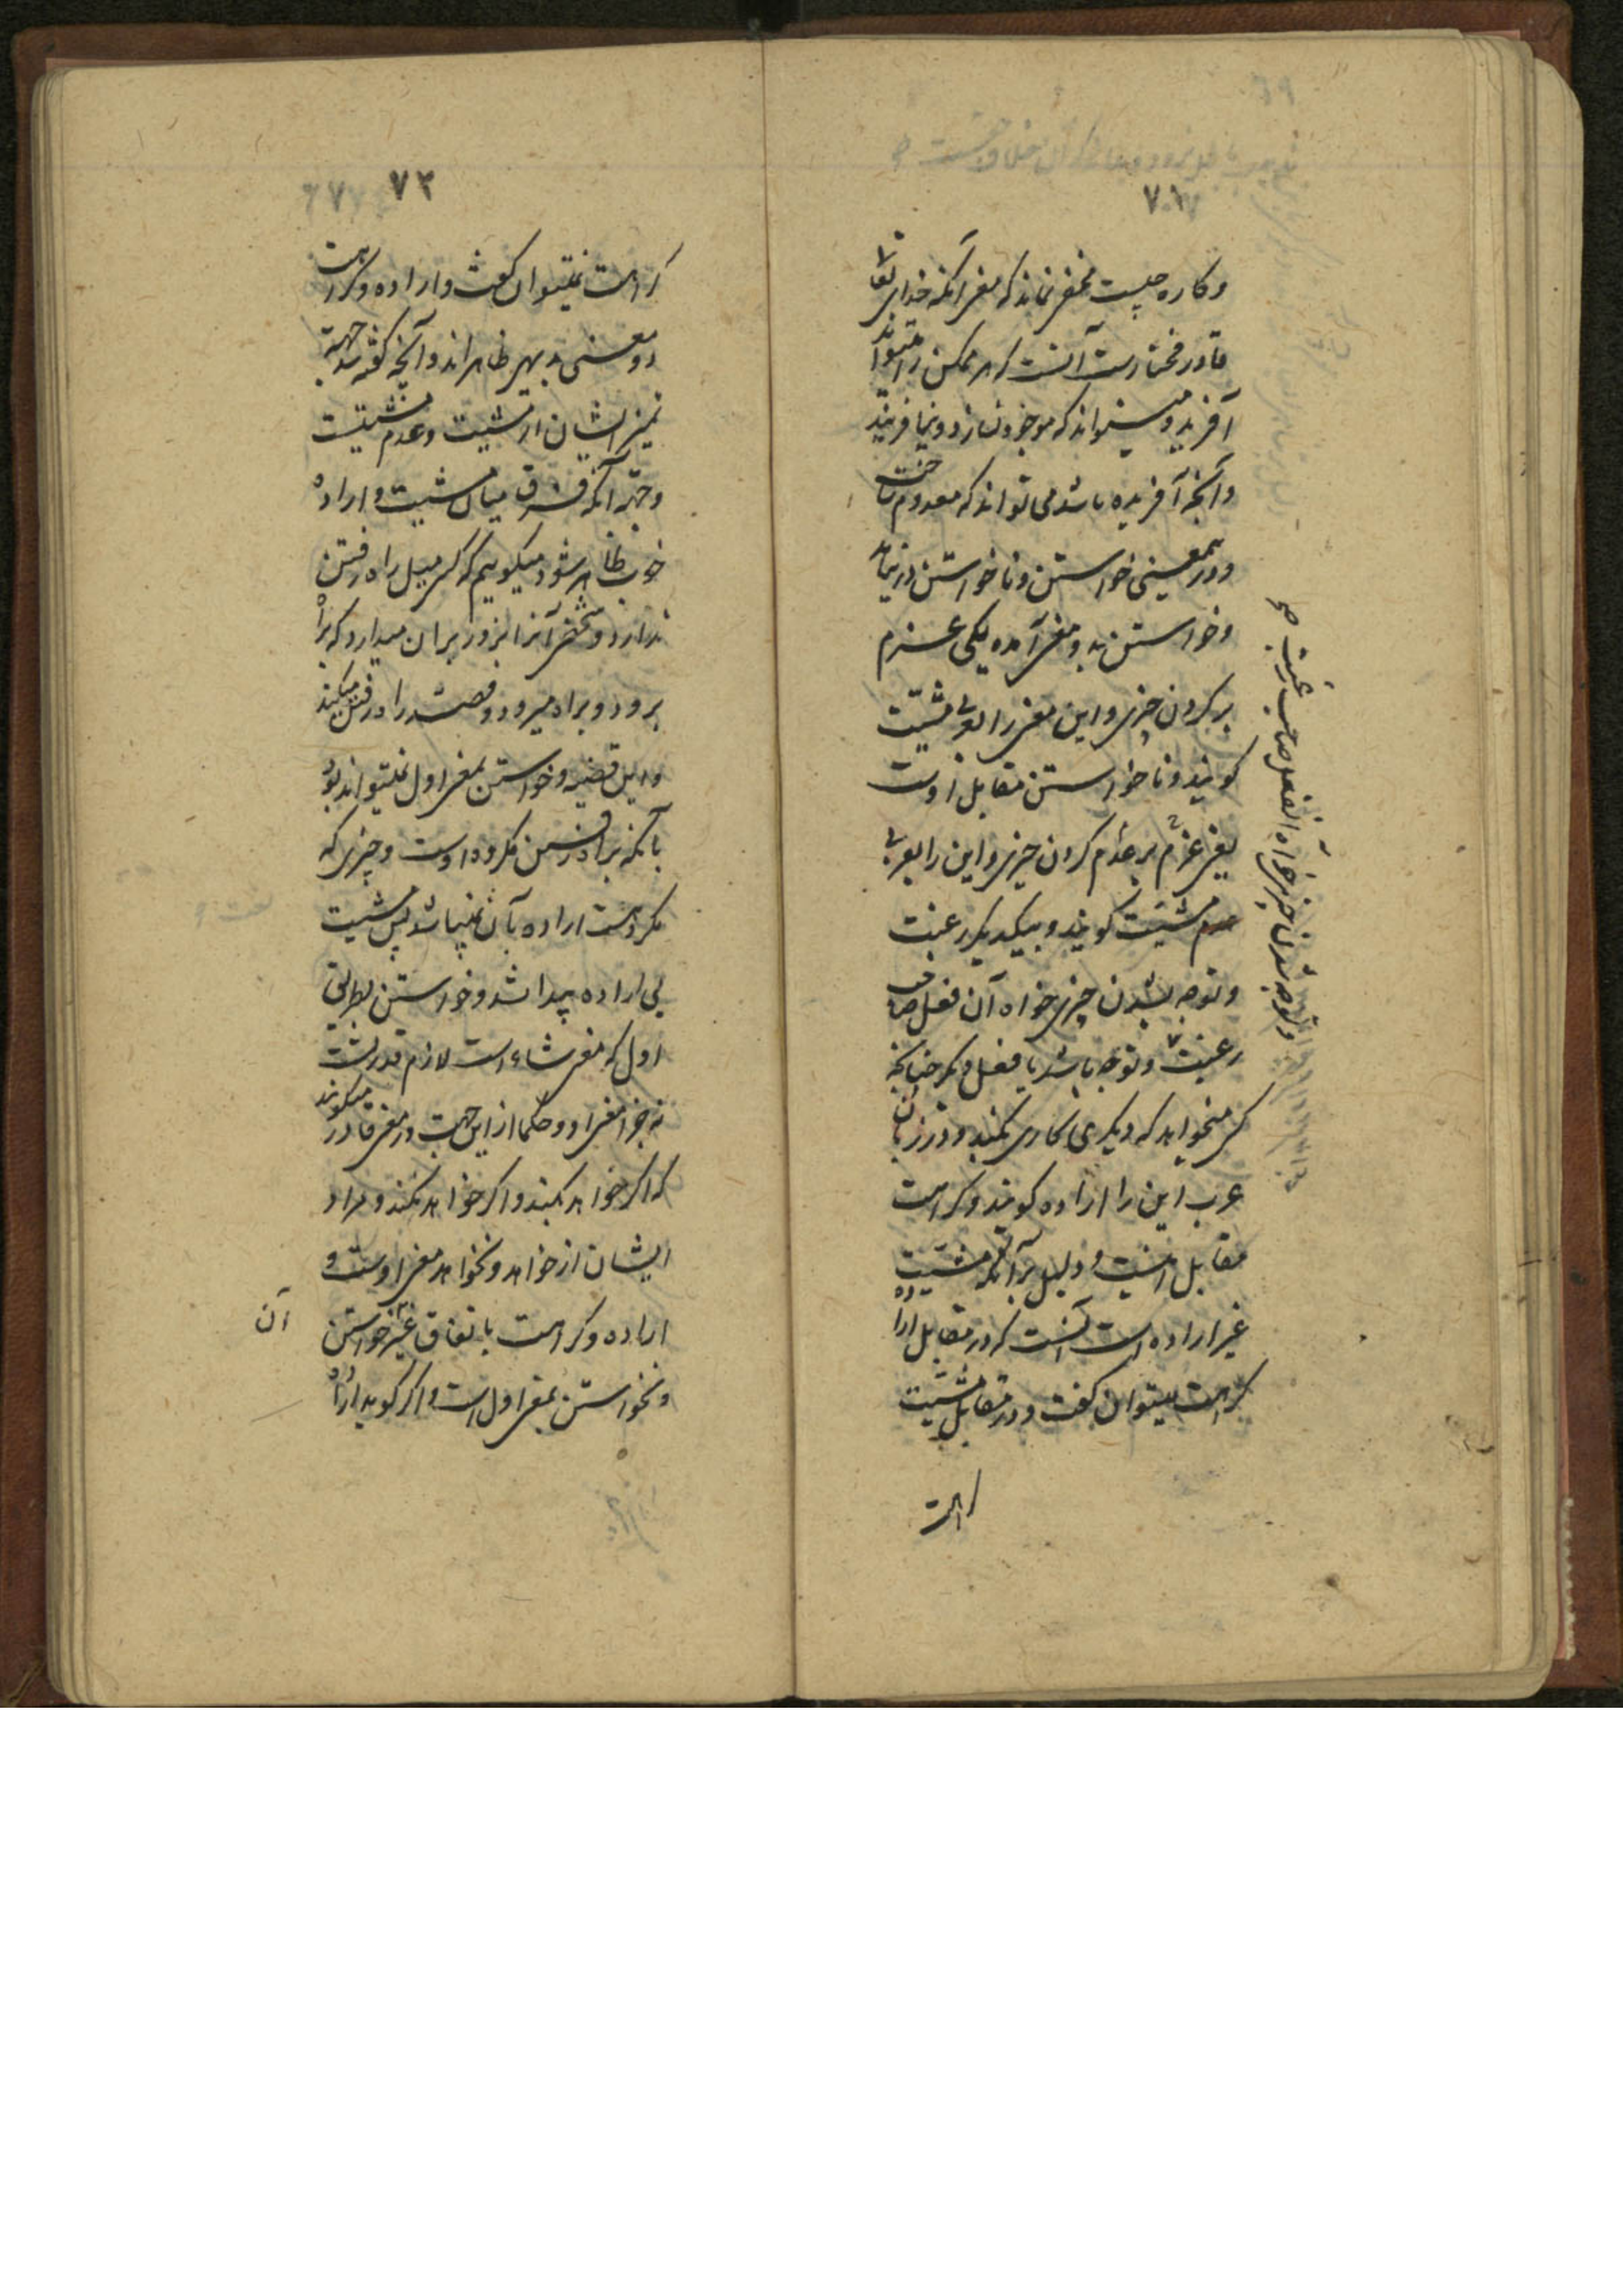 ۷۱
وکاره چیست مخفی نماند که معنی آنکه خدای تعالی
قادر مختارست آنست که هر ممکن را میتواند
آفرید و میتواند که موجود نسازد و نیافریند
و آنچه آفریده باشد می تواند که معدوم ساخت
و در معنی خواستن و ناخواستن درنیابد
و خواستن بدو معنی آمده یکی عزم
بر کردن چیزی و این معنی را بعربی مشیّت
کویند و ناخواستن مقابل اوست
یعنی عزم بر عدم کردن چیزی و این را بعربی
عدم مشیّت کویند و بیکدیکر رغبت
و توجه بشدن چیزی خواه آن فعل صاحب
رغبت و توجه باشد یا فعل دیکر چنانکه
کسی میخواهد که دیکری کاری بکند و در زبان
عرب این را اراده کویند و کراهت
مقابل اینست و دلیل بر آنکه مشیّت
غیر اراده است آنست که در مقابل اراده
کراهت میتوان کفت و در مقابل مشیّت
کراهت
و توجه بشدن چیزی خواه آن فعل صاحب رغبت
۷۲
کراهت نمیتوان کفت و اراده و کراهت
دو معنی بدیهی ظاهراند و آنچه کفته شد جهة
تمیز ایشان از مشیت و عدم مشیّتست
و جهة آنکه فرق میان مشیت و اراده
خوب ظاهر شود میکوییم که کسی میل راه رفتن
ندارد و شخصی آنرا بزور بر آن میدارد که براه
برود و براه میرود و قصد راه رفتن میکند
و این قضیه و خواستن بمعنی اول نمیتواند بود
با آنکه براه رفتن مکروه اوست و چیزی که
مکروهست اراده بآن نمیباشد پس مشیت
بی اراده پیدا شد و خواستن بطریق
اول که معنی شاء است لازم قدرتست
نه جزء معنی او و حکما از این جهت در معنی قادر میکویند
که اکر خواهد بکند و اکر خواهد نکند و مراد
ایشان از خواهد و نخواهد معنی اوست و
اراده و کراهت باتفاق غیر خواستن
و نخواستن بمعنی اول است و اکر کوید اراده
آن